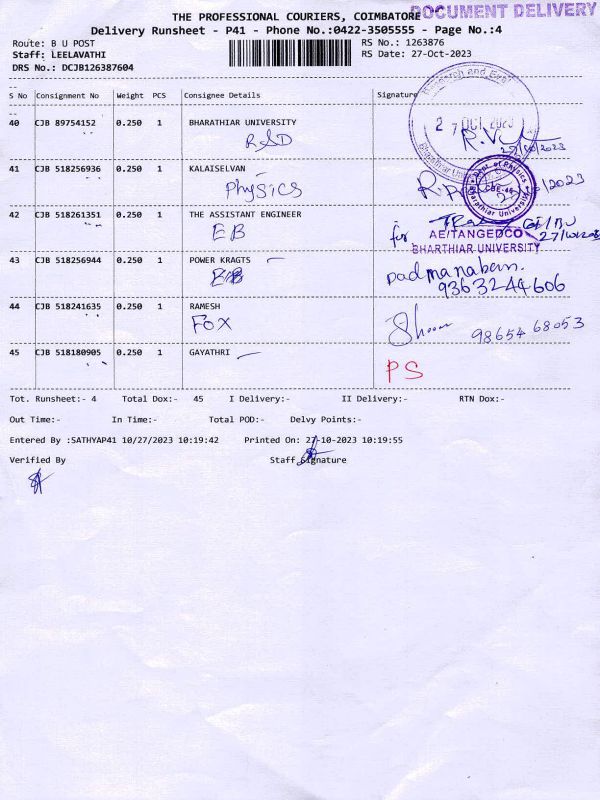 DOCUMENT DELIVERY
THE PROFESSIONAL COURIERS, COIMBATORE
Delivery Runsheet - P41 - Phone No.:0422-3505555 - Page No.:4
Route: B U POST
RS No.: 1263876
Staff: LEELAVATHI
RS Date: 27-Oct-2023
DRS No.: DCJB126387604
S No Consignment No Weight PCS Consignee Details Signature
40 CJB 89754152 0.250 1 BHARATHIAR UNIVERSITY
RSD
41 CJB 518256936 0.250 1 KALAISELVAN
Physics
42 CJB 518261351 0.250 1 THE ASSISTANT ENGINEER
EB
for
AE/TANGEDCO
BHARTHIAR UNIVERSITY
43 CJB 518256944 0.250 1 POWER KRAGTS
padmanaban.
9363244606
44 CJB 518241635 0.250 1 RAMESH
FOX
98654 68053
45 CJB 518180905 0.250 1 GAYATHRI
PS
Tot. Runsheet:- 4 Total Dox:- 45 I Delivery:- II Delivery:- RTN Dox:-
Out Time:- In Time:- Total POD:- Delvy Points:-
Entered By :SATHYAP41 10/27/2023 10:19:42 Printed On: 27-10-2023 10:19:55
Verified By Staff Signature